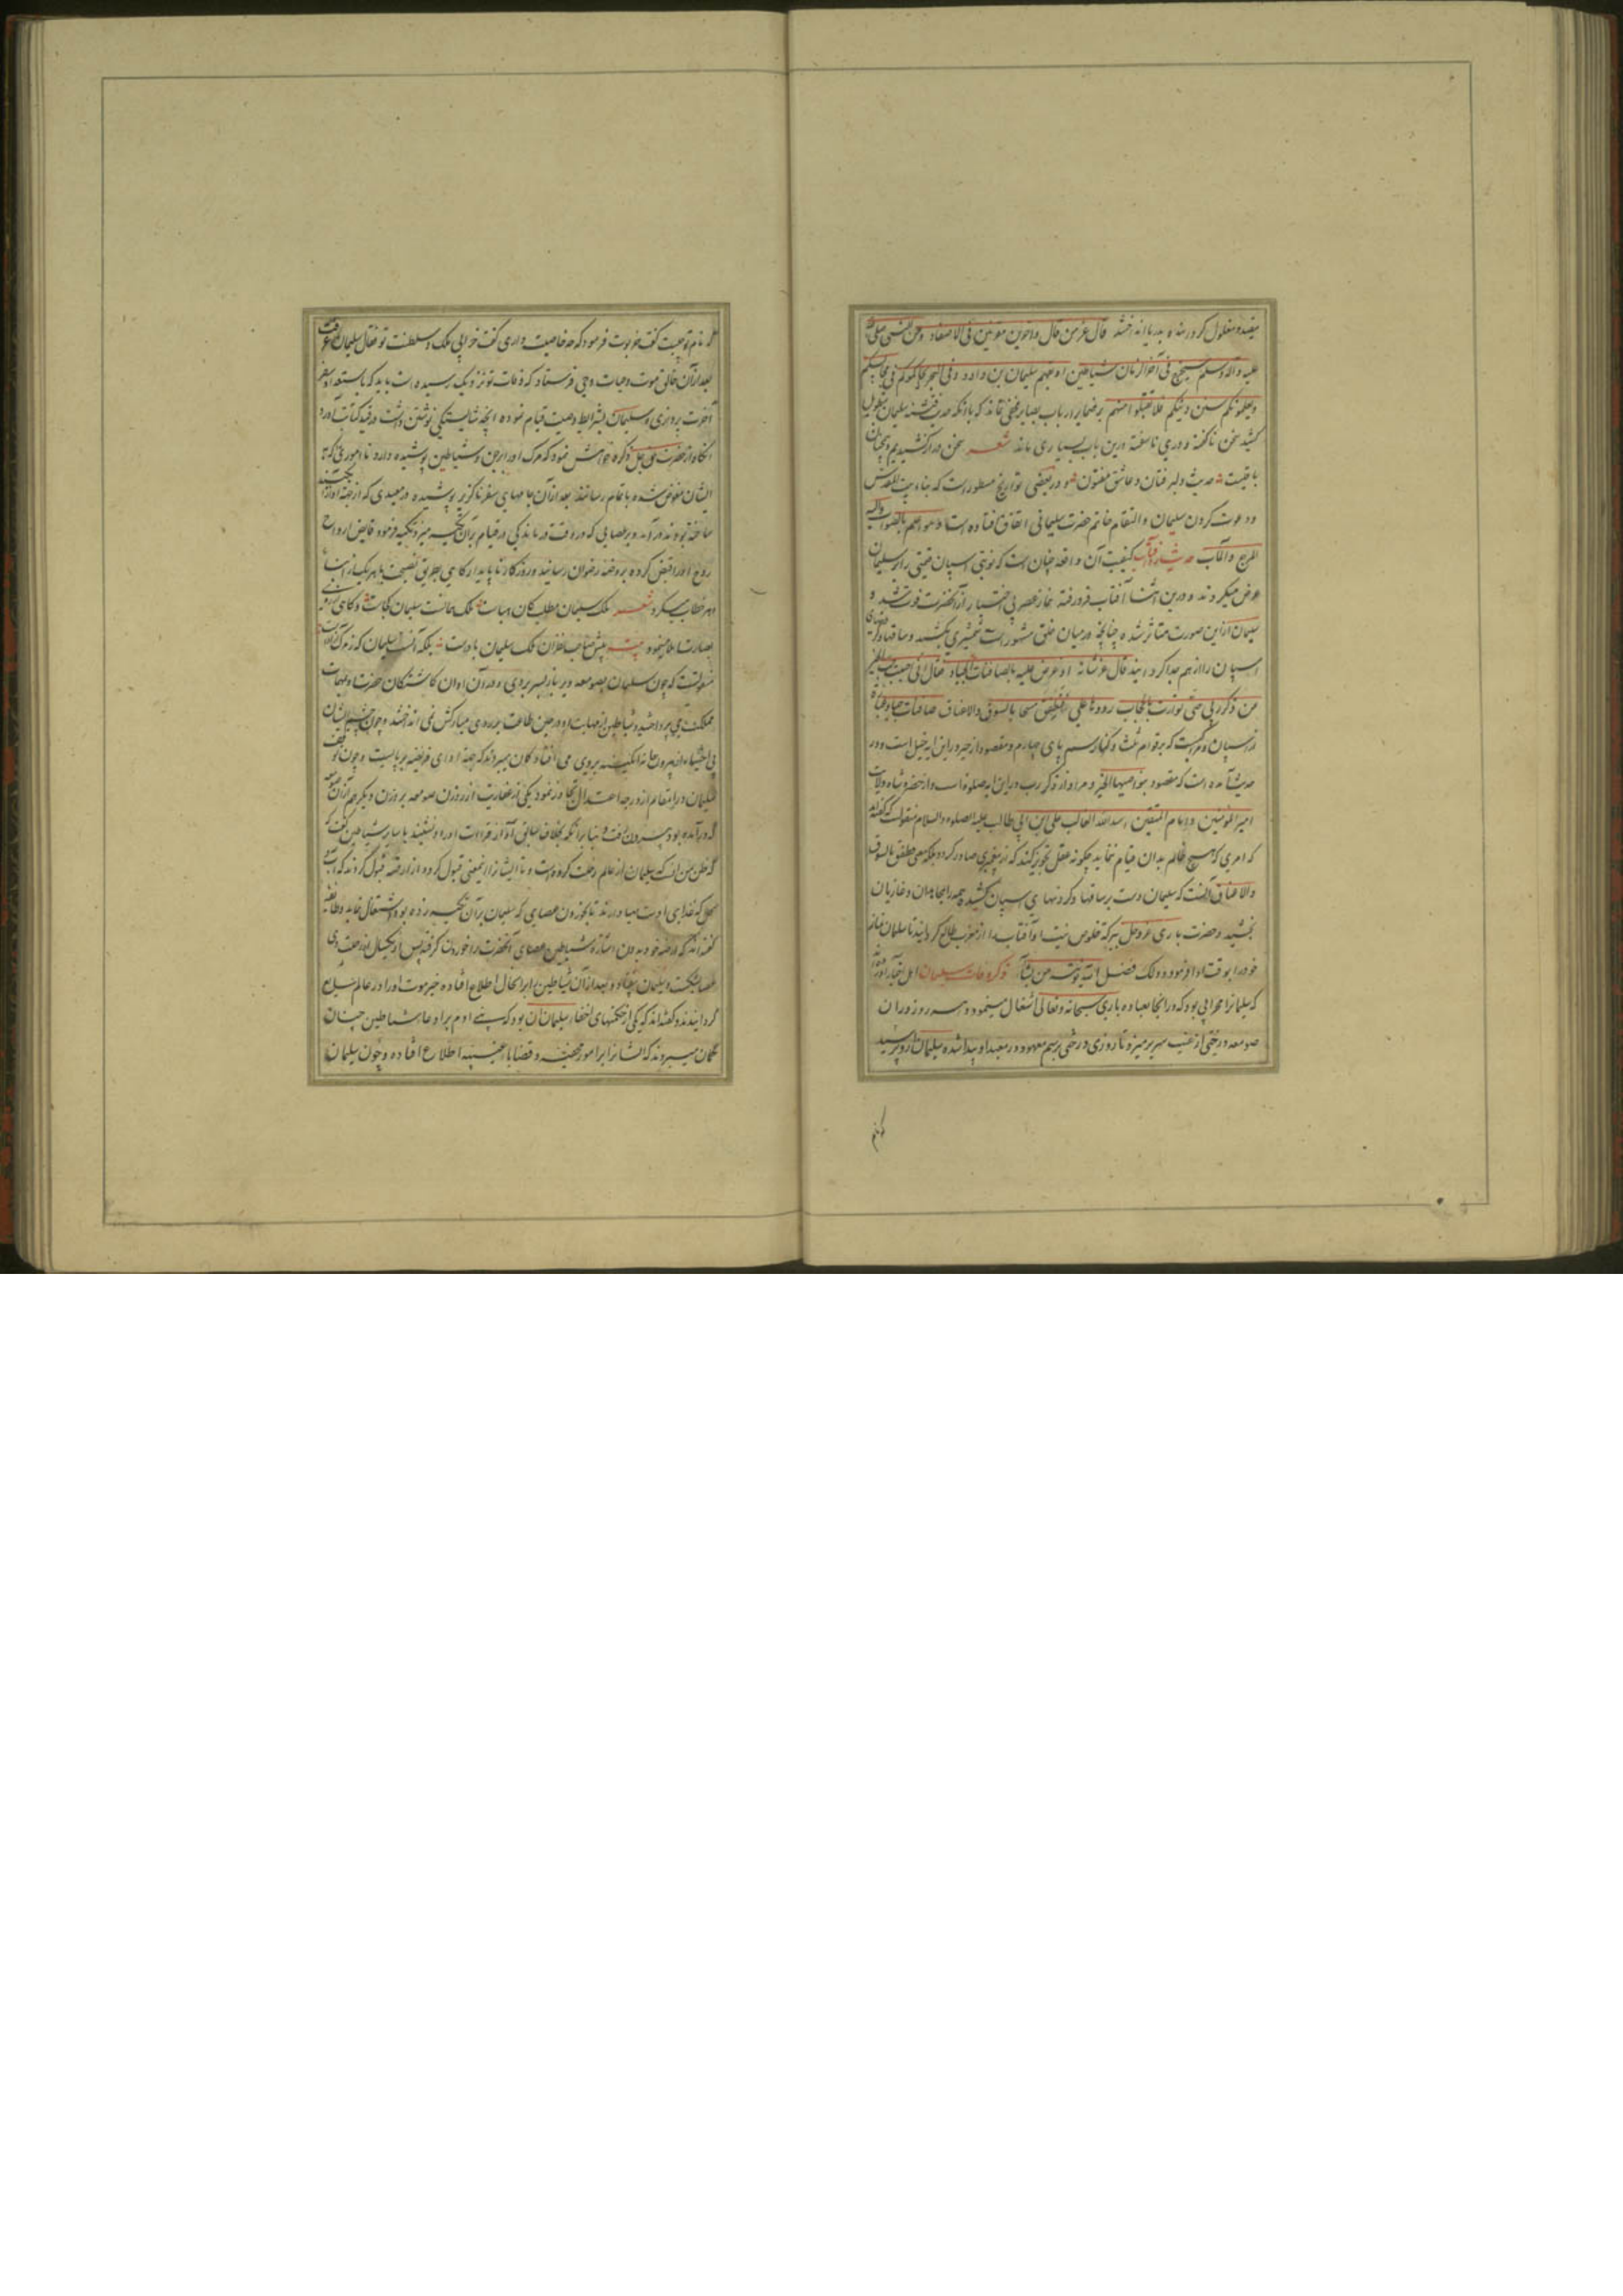 مقید و مغلول کرد در بدریا انداختند قال عز من قال و آخرین مقرنین فی الاصفاد وعن النبی صلی الله
علیه وآله وسلم سیخرج فی آخر الزمان شیاطین سلیمان بن داود و فی البحر یجالسوکم فی مجالسکم
ویعلمونکم سنن دینکم فلا تقبلوا منهم بر ضمایر ارباب بصایر مخفی نماند که با آنکه حدیث سلیمان بتطویل
کشید سخن ناگفته و دری ناسفته درین باب بسیاری ماند شعر سخن دراز کشیدیم و همچنان
باقیست حدیث دلبر فتان و عاشق مفتون و در بعضی تواریخ مسطورست که بناء بیت المقدس
و دعوت کردن سلیمان و التقام خاتم حضرت سلیمانی اتفاق افتاده است وهو اعلم بالصواب والیه
المرجع والمآب کیفیت آن واقعه چنان است که نوبتی اسپان قیمتی را بر سلیمان
عرض میکردند و درین اثنا آفتاب فرو رفته نماز عصر بی اختیار از آنحضرت فوت شد و
سلیمان ازین صورت متأثر شده چنانچه در میان خلق مشهورست شمشیری بکشید و ساقها و گردنهای
اسپان را از هم جدا گردانید قال عز شانه اذ عرض علیه بالصافنات الجیاد فقال انی احببت حب الخیر
عن ذکر ربی حتی توارت بالحجاب ردوها علی فطفق مسحا بالسوق والاعناق صافنات
از اسپان که بر قوایم ثلث و کنار سم پای چهارم و مقصود از خیر دراین آیه خیل است و در
حدیث آمده است که مقصود بنواصیها الخیر و مراد از ذکر رب دراین آیه صلوة است و از حضرت شاه ولایت
امیر المؤمنین و امام المتقین اسد الله الغالب علی ابن ابی طالب علیه الصلوه والسلام منقولست که گفته اند
که امری که هیچ ظالم بدان قیام ننماید چگونه عقل تجویز کند که از پیغمبری صادر گردد بلکه معنی فطفق بالسوق
والاعناق آنست که سلیمان دست بر ساقها و گردنهای اسپان کشیده همه را بمجاهدان و غازیان
بخشید و حضرت باری عز و جل ببرکه خلوص نیت او آفتاب را از مغرب طالع گردانید تا سلیمان نماز
خود را بوقت ادا فرمود و ذلک فضل الله یؤتیه من یشآء ذکر وفات سلیمان اهل اخبار آورده اند
که سلیمانرا محرابی بود که در آنجا بعباده باری سبحانه و تعالی اشتغال مینمود و هر روز در آن
صومعه درختی از غیب سر بر میزد تا روزی درختی برسم معهود در معبد او پیدا شده سلیمان از و پرسید
که نام
که نام تو چیست گفت خرنوب فرمود که چه خاصیت داری گفت خرابی ملک و سلطنت تو فقال سلیمان
بعد از آن خالق موت و حیات وحی فرستاد که وفات تو نزدیک رسیده است باید که باستعداد سفر
آخرت پردازی و سلیمان بشرایط وصیت قیام نموده آنچه شایستگی نوشتن داشت در قید کتابت آورد
آنگاه از حضرت جل ذکره خواهش نمود که مرگ او را از جن و شیاطین پوشیده دارد تا اموری که به
ایشان مفوض شده باتمام رسانند بعد از آن جامهای سفر ناگزیر پوشیده در معبدی که از جهة او از آبگینه
ساخته بودند در آمد و بر عصایی که در وقت درماندگی در قیام بر آن تکیه میزد تکیه فرموده قابض ارواح
روح او را قبض کرده بروضه رضوان رسانید و روزگار ناپایدار گاهی بطریق نصیحت با هر یک از
خطاب میکرد شعر ملک سلیمان مطلب کان هباست ملک همانست سلیمان کجاست و گاهی از روی
بصارت ادا مینمود بیت پیش صاحب نظران ملک سلیمان بادست بلکه آنست سلیمان که ز ملک آزادست
منقولست که چون سلیمان بصومعه و بر نماز بسر بردی و در آن اوان گماشتگان حضرت او بمهمات
مملکت می پرداختند و شیاطین از مهابت او در حین طاعت بر روی مبارکش نمی انداختند و چون چشم ایشان
بی اختیار از بیرون خانه آبگینه بر وی می افتاد گمان میبردند که جهة ادای فریضه بر پایست و چون توقف
سلیمان در این مقام از درجه اعتدال تجاوز نمود یکی از عفاریت از روزن صومعه بر روزن دیگر هم از آن صومعه
که در آمده بود بیرون رفت و بنابر آنکه بخلاف سابق آواز قراءت او را نشنید با سایر شیاطین گفت که
که ظن من آنست که سلیمان از عالم رحلت کرده است و تا ایشان این معنی قبول کردند از ارضه قبول کردند که آب
و گل که غذای اوست مهیا دارند تا بخوردن عصایی که سلیمان بر آن تکیه زده بود اشتغال نماید و طایفه
گفته اند که ارضه خود بدون اشاره شیاطین عصای آنحضرت را خوردن گرفت پس از یکسال از رحلت وی
عصا بشکست و سلیمان بیفتاد و بعد از آن شیاطین بر آن حال اطلاع افتاده خبر موت او را در عالم شایع
گردانیدند و گفته اند که یکی از حکمتهای اخفاء سلیمان آن بود که بنی آدم بر ادعاء شیاطین چنان
گمان میبردند که ایشانرا بر امور خفیه و قضایا غیبیه اطلاع افتاده و چون سلیمان